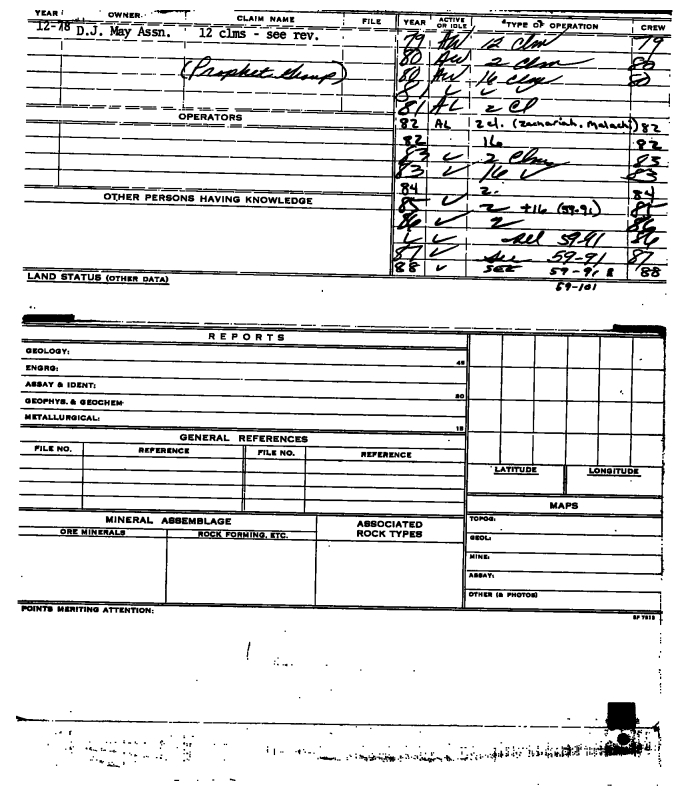 YEAR OWNER CLAIM NAME FILE YEAR ACTIVE OR IDLE *TYPE OF OPERATION CREW
12-78 D.J. May Assn. 12 clms - see rev. 79 AW 12 clm 79
80 AW 2 clm 80
(Prophet Group) 80 AW 16 clms 80
81 ✓ ✓
81 AL 2 Cl
OPERATORS
82 AL 2 cl. (Zachariah, Malachi) 82
82 16 82
83 ✓ 2 Clms 83
83 ✓ 16 ✓ 83
84 2. 84
OTHER PERSONS HAVING KNOWLEDGE
85 ✓ 2 +16 (59-91) 85
86 ✓ 2 86
✓ ✓ see 59-91 86
87 ✓ see 59-91 87
88 ✓ SEE 59-91 & 88
LAND STATUS (OTHER DATA)
59-101
REPORTS
GEOLOGY:
45
ENGRG:
ASSAY & IDENT:
GEOPHYS. & GEOCHEM
METALLURGICAL:
15
GENERAL REFERENCES
FILE NO. REFERENCE FILE NO. REFERENCE
LATITUDE LONGITUDE
MAPS
MINERAL ASSEMBLAGE
ORE MINERALS ROCK FORMING, ETC.
ASSOCIATED ROCK TYPES
TOPOG:
GEOL:
MINE:
ASSAY:
OTHER (& PHOTOS)
POINTS MERITING ATTENTION: